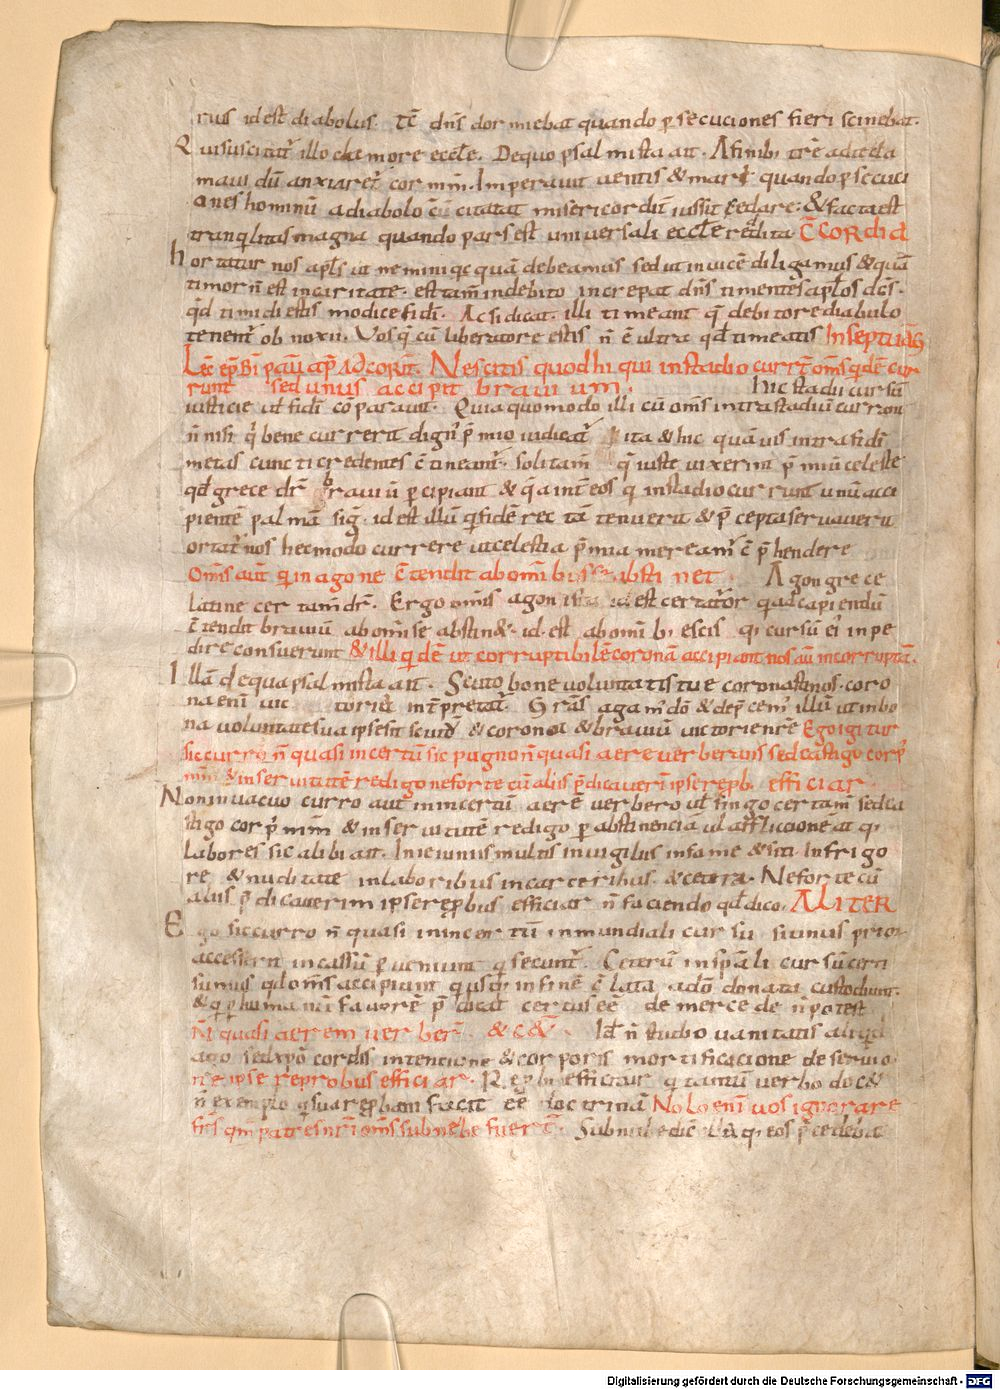 rus id est diabolus. Tc̄ dn̄s dormiebat quando ꝑsecuciones fieri scinebat.
Qui suscitat᷑ illo clamore eccl̄e. De quo psalmista ait. A finib; tr̄e ad te cla
maui dū anxiaret᷑ cor mm̄. Imperauit uentis & mari quando ꝑsecuci
ones hominū a diabolo misericordit̄ iussit sedare: & facta est
tranq̇llitas magna quando pars est uniuersali eccl̄e reddita CC̄ORDIA
hortatur nos apl̄s ut nemini qc quā debeamus sed ut inuicē diligamus & quā
timor n̄ est in caritate. est tam̄ indebito increpat dn̄s timentes apl̄os dc̄s.
qd̄ timidi estis modice fidi. Ac si dicat. illi timeant q̄ debitore diabulo
tenent᷑ ob noxii. Vos q̄ cū liberatore estis n̄ ē ultra qd̄ timeatis In septuāg
Lec̄ ep̄. Bi pauli ap̄ Ad corint̄. Nescitis quod hi qui in stadio curr̄t om̄s q̇dē cur
runt sed unus accipit brauium. hic stadii cursū
iusticie ul̄ fidi cōparauit. Quia quomodo illi cū om̄s intra stadiū curron
n̄ nisi q̇ bene currerit dign᷑ p̄mio iudicat᷑ ita & hic quāuis intra fidi
metas cuncti credentes c̄tineant᷑. soli tam̄ q̇ iuste uixerint p̄miū celeste
qd̄ grece dr̄ brauiū ꝑcipiant & q̇a int̄ eos q̇ in stadio currunt unū acci
pientē palmā siḡ. id est illū q̇ fidē rectā tenuerit & p̄cepta seruauerit
ortat᷑ nos hec modo currere ut celestia p̄mia meream᷑ c̄p̄hendere
Om̄s aut̄ q̇ in agone c̄tendit ab om̄ib; se abstinet. Agon grece
latine certam̄ dr̄. Ergo om̄is agonista id est certator q̇ ad capiendū
c̄tendit brauiū ab om̄i se abstin&. id. est ab om̄ib; escis q̇ cursū ei᷑ inpe
dire consuerunt & illi q̇dē ut corruptibilē coronā accipiant nos aū incorruptā.
Illā de qua psalmista ait. Scuto bone voluntatis tue coronasti nos. coro
na eni uictorie int̄pretat᷑. Gr̄as agam᷑ dō & dep̄cem᷑ illū ut in bo
na uoluntate sua ipse sit scutū & corona & brauiū uictorie nr̄e Ego igitur
sic curro n̄ quasi incertū sic pugno n̄ quasi aere uerberans sed castigo corp᷑
mm̄ & in seruitutē redigo ne forte cū aliis p̄dicauerī ipse rep̄b. efficiar.
Non in uacuo curro aut in incertū aerē uerbero ul̄ fingo certam̄ sed ca
stigo corp᷑ mm̄ & in seruitutē redigo ꝑ abstinenciā ul̄ afflicciones at q̇
labores sic alibi ait. In ieiuniis multis in uigiliis in fame & siti. In frigo
re & nuditate in laboribus in carceribus. & cetera. Ne forte cū
aliis p̄dicauerim ipse rep̄bus efficiar n̄ faciendo qd̄ dico. ALITER
Ego sic curro n̄ quasi in incertū in mundiali cursu si unus prior
accesserit in cassū ꝑueniunt q̇ secunt᷑. Ceterū in sp̄ali cursu certi
sumus qd̄ om̄s accipiant q̇ usq; in finē c̄lata a dō donata custodiunt.
& q̇ ꝑ humanū fauorē p̄dicat certus eē de mercede n̄ potest
N̄ quasi aerem uerber̄. & c&̄. Id̄ n̄ studio uanitatis aliq̇d
ago sed xp̄o cordis intencione & corporis mortificacione deseruio.
ne ipse reprobus efficiar. Rep̄b; efficiat᷑ q̇ tantū uerbo doc&
n̄ exemplo q̇ sua rep̄bam facit eē doctrinā Nolo eni uos ignorare
fr̄s qm̄ patres nr̄i om̄s sub nube fuer̄t. Sub nube dic̄ q̇ eos p̄cedebat